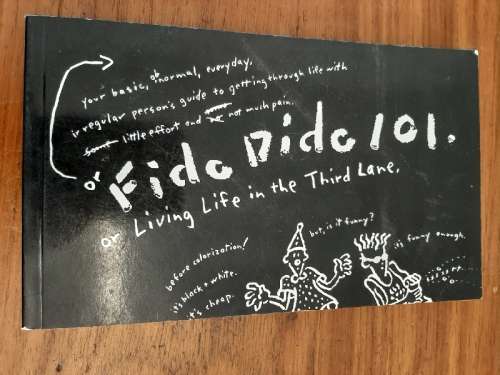 your basic, abnormal, everyday,
irregular person's guide to getting through life with
some little effort and not much pain.
or Fido Dido 101.
or Living Life in the Third Lane.
but, is it funny?
it's funny enough.
before colorization!
it's black + white.
it's cheap.